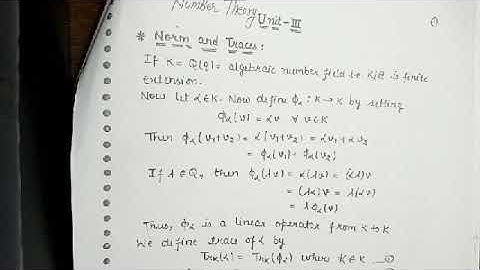 Number Theory
Unit-III
①
* Norm and Traces:
If K = Q(θ) = algebraic number field i.e. K/Q is finite
extension.
Now let α∈K. Now define ϕα : K → K by setting
ϕα(v) = αv ∀ v∈K
Then ϕα(v1+v2) = α(v1+v2) = αv1+αv2
= ϕα(v1)+ϕα(v2)
If λ∈Q, then ϕα(λv) = α(λv) = (αλ)v
= (λα)v = λ(αv)
= λϕα(v)
Thus, ϕα is a linear operator from K to K
We define trace of α by
TrK(α) = TrK(ϕα) where α∈K